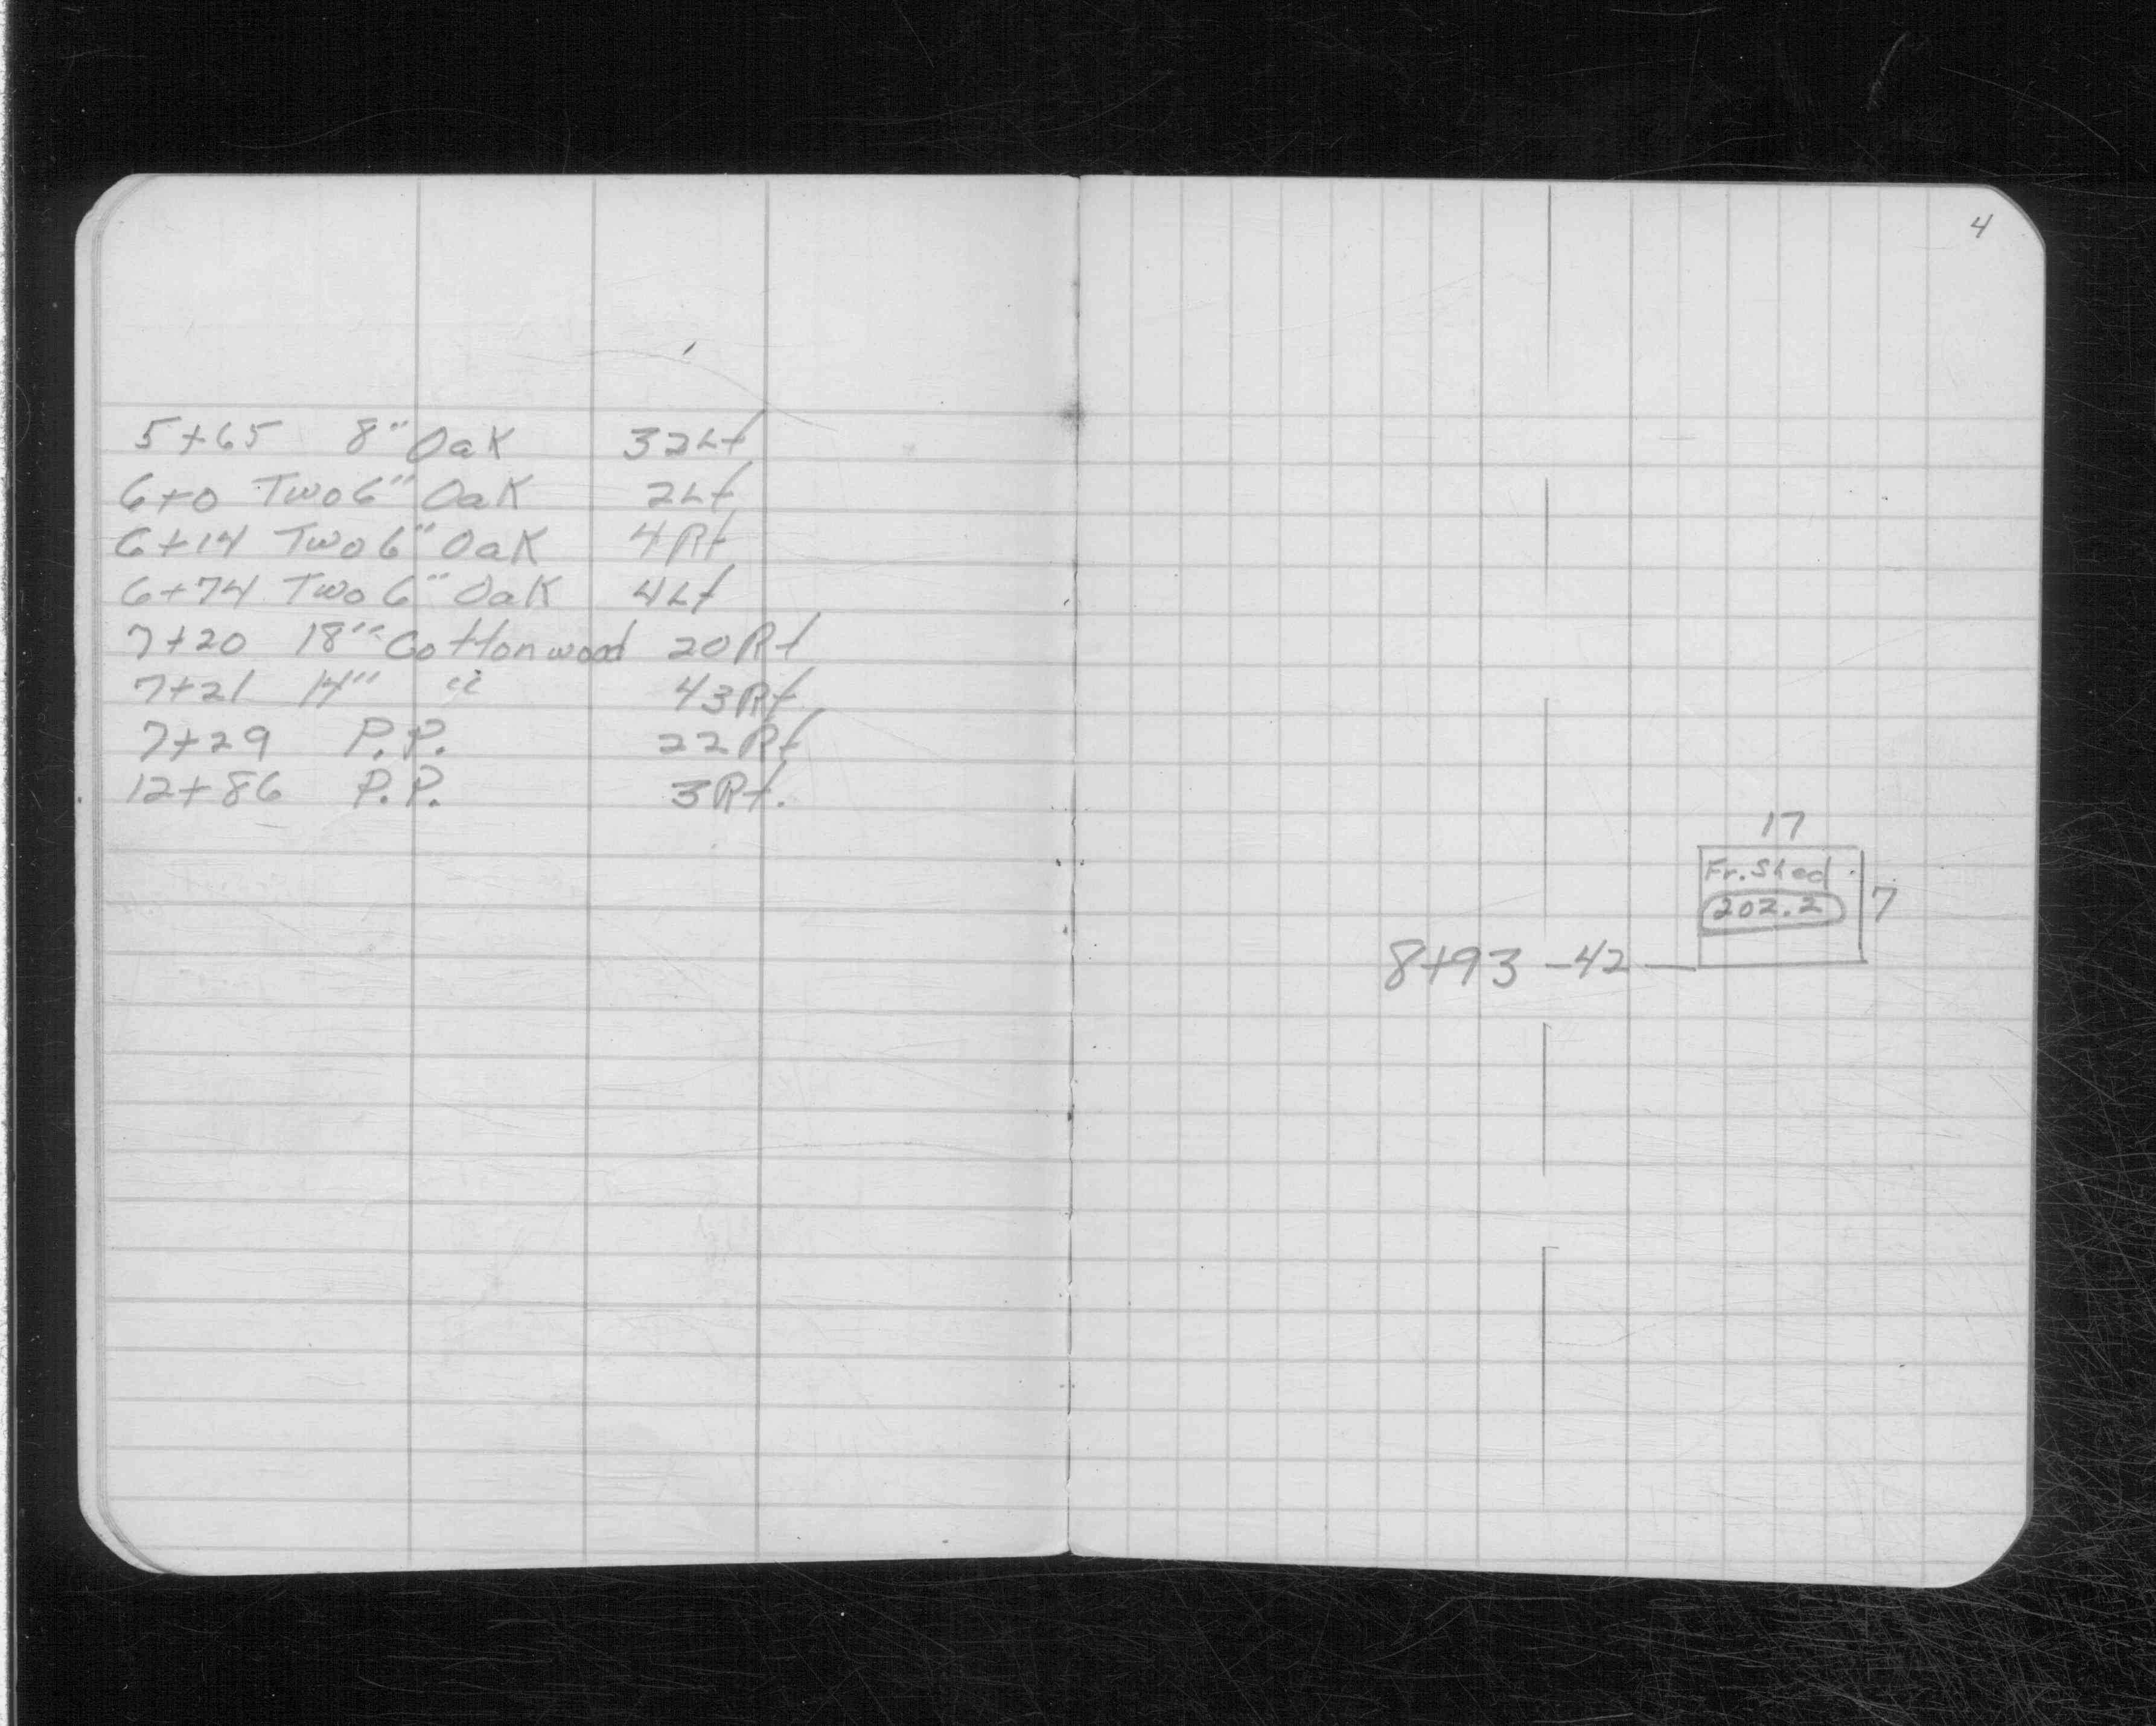 5+65 8" Oak 32Lt
6+0 Two 6" Oak 2Lt
6+14 Two 6" Oak 4Rt
6+74 Two 6" Oak 4Lt
7+20 18" Cottonwood 20Rt
7+21 14" " 43Rt
7+29 P.P. 22Rt
12+86 P.P. 3Rt.
4
17
Fr. Shed
202.2
7
8+93 -42-